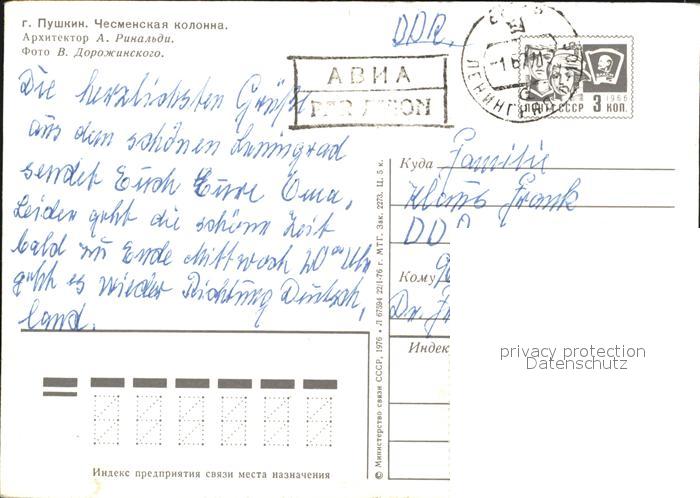 г. Пушкин. Чесменская колонна.
Архитектор А. Ринальди.
Фото В. Дорожинского.
DDR.
АВИА
PAR AVION
ЛЕНИНГРАД
ПОЧТА СССР 3 КОП.
1966
Die herzlichsten Grüße
aus dem schönen Leningrad
sendet Euch Eure Oma.
Leider geht die schöne Zeit
bald zu Ende Mittwoch 20 Uhr
geht es wieder Richtung Deutsch
land.
Куда Familie
Klaus Frank
DD
Кому
Dr.
Индек
privacy protection
Datenschutz
Индекс предприятия связи места назначения
© Министерство связи СССР, 1976 • Л 67594 22/I-76 г. МТГ. Зак. 2273. Ц. 5 к.